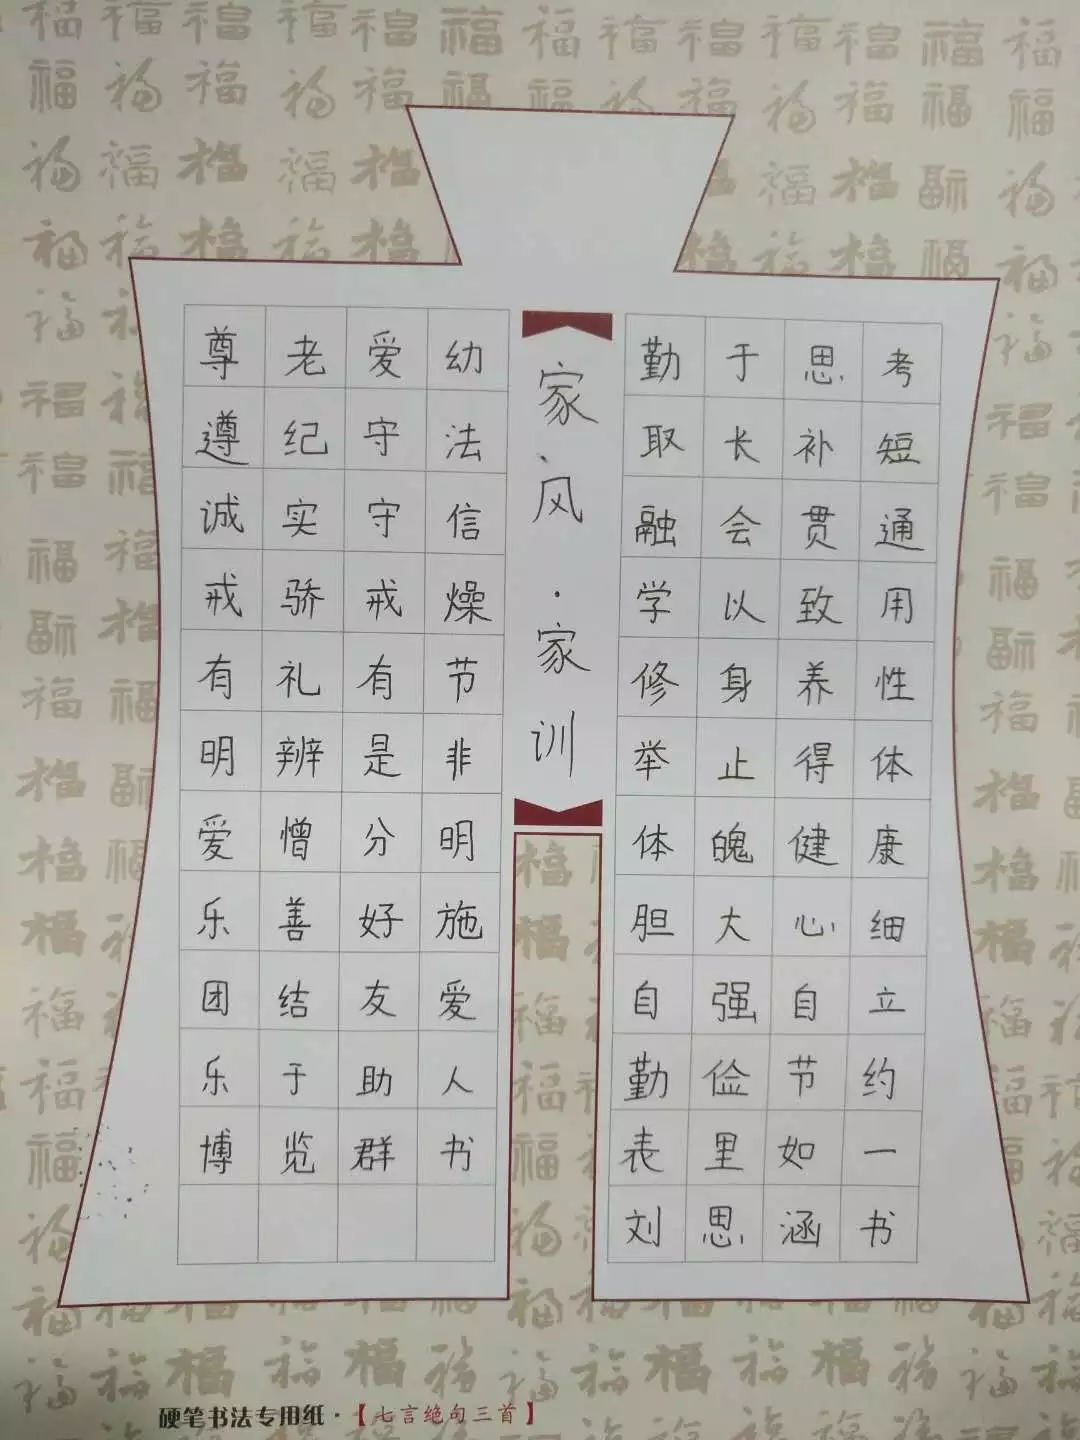 家风·家训
尊老爱幼
遵纪守法
诚实守信
戒骄戒燥
有礼有节
明辨是非
爱憎分明
乐善好施
团结友爱
乐于助人
博览群书
勤于思考
取长补短
融会贯通
学以致用
修身养性
举止得体
体魄健康
胆大心细
自强自立
勤俭节约
表里如一
刘思涵书
硬笔书法专用纸·【七言绝句三首】